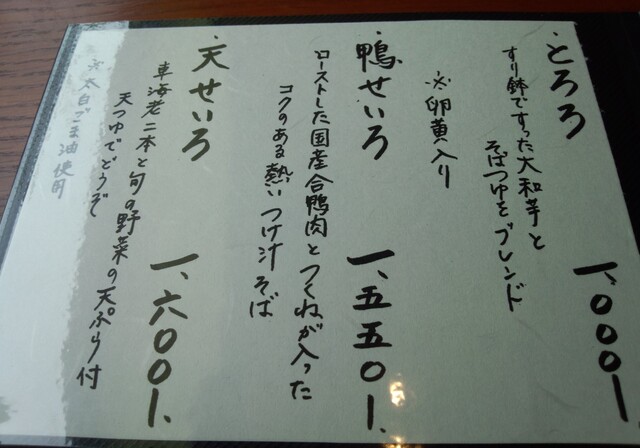 とろろ 一、〇〇〇ー
すり鉢ですった大和芋と
そばつゆをブレンド
※卵黄入り
鴨せいろ 一、五五〇ー、
ローストした国産合鴨肉とつくねが入った
コクのある熱いつけ汁そば
天せいろ 一、六〇〇ー、
車海老二本と旬の野菜の天ぷら付
天つゆでどうぞ
※太白ごま油使用